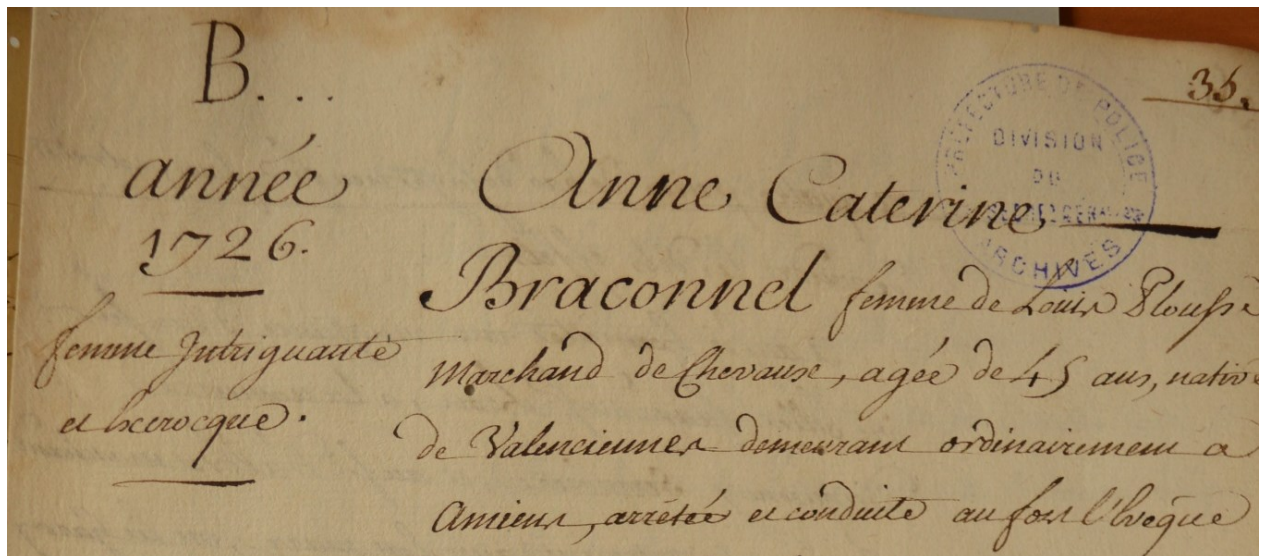 B...
35.
PRÉFECTURE DE POLICE
DIVISION
DU
ARCHIVES
année
1726.
femme Intriguante
et Escrocque.
Anne Caterine
Braconnel femme de Louis Plousse
Marchand de Chevaux, agée de 45 ans, native
de Valenciennes demeurant ordinairement a
Amiens, arrétée et conduite au fort l'Evêque